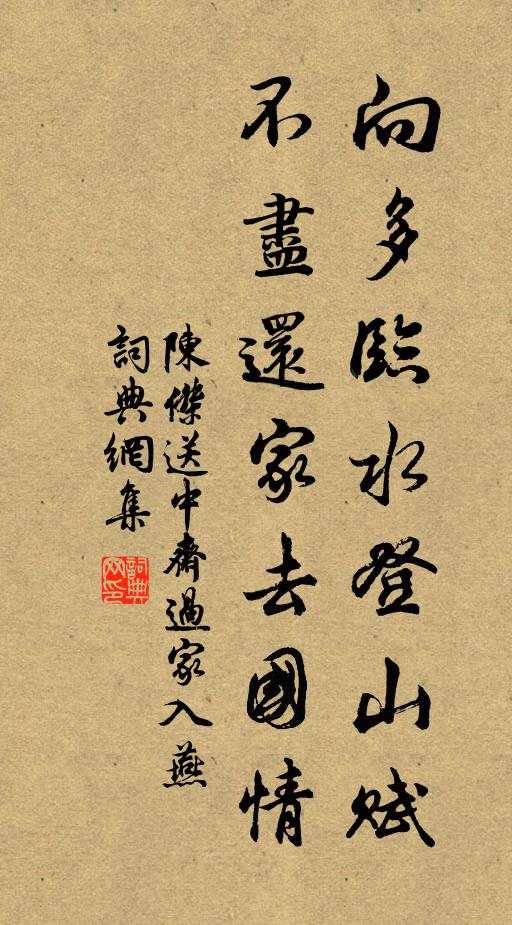 向多臨水登山賦
不盡還家去國情
陳傑送中齋過家入燕
詞典網集
詞典網印